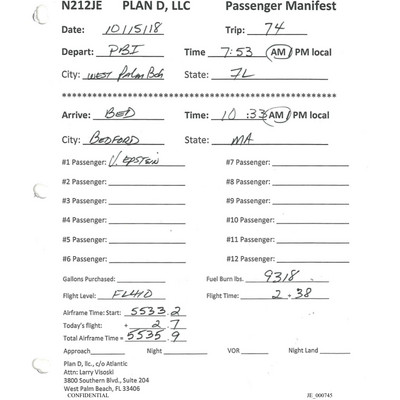 N212JE PLAN D, LLC Passenger Manifest
Date: 10/15/18 Trip: 74
Depart: PBI Time 7:53 AM / PM local
City: West Palm Bch State: FL
Arrive: BED Time: 10:33 AM / PM local
City: BEDFORD State: MA
#1 Passenger: J. EPSTEIN #7 Passenger:
#2 Passenger: #8 Passenger:
#3 Passenger: #9 Passenger:
#4 Passenger: #10 Passenger:
#5 Passenger: #11 Passenger:
#6 Passenger: #12 Passenger:
Gallons Purchased: Fuel Burn lbs. 9318
Flight Level: FL410 Flight Time: 2.38
Airframe Time: Start: 5533.2
Today's flight: + 2.7
Total Airframe Time = 5535.9
Approach Night VOR Night Land
Plan D, llc., c/o Atlantic
Attn: Larry Visoski
3800 Southern Blvd., Suite 204
West Palm Beach, FL 33406
CONFIDENTIAL JE_000745